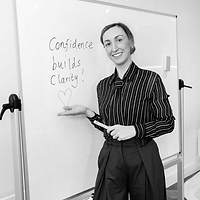 Confidence
builds
Clarity!